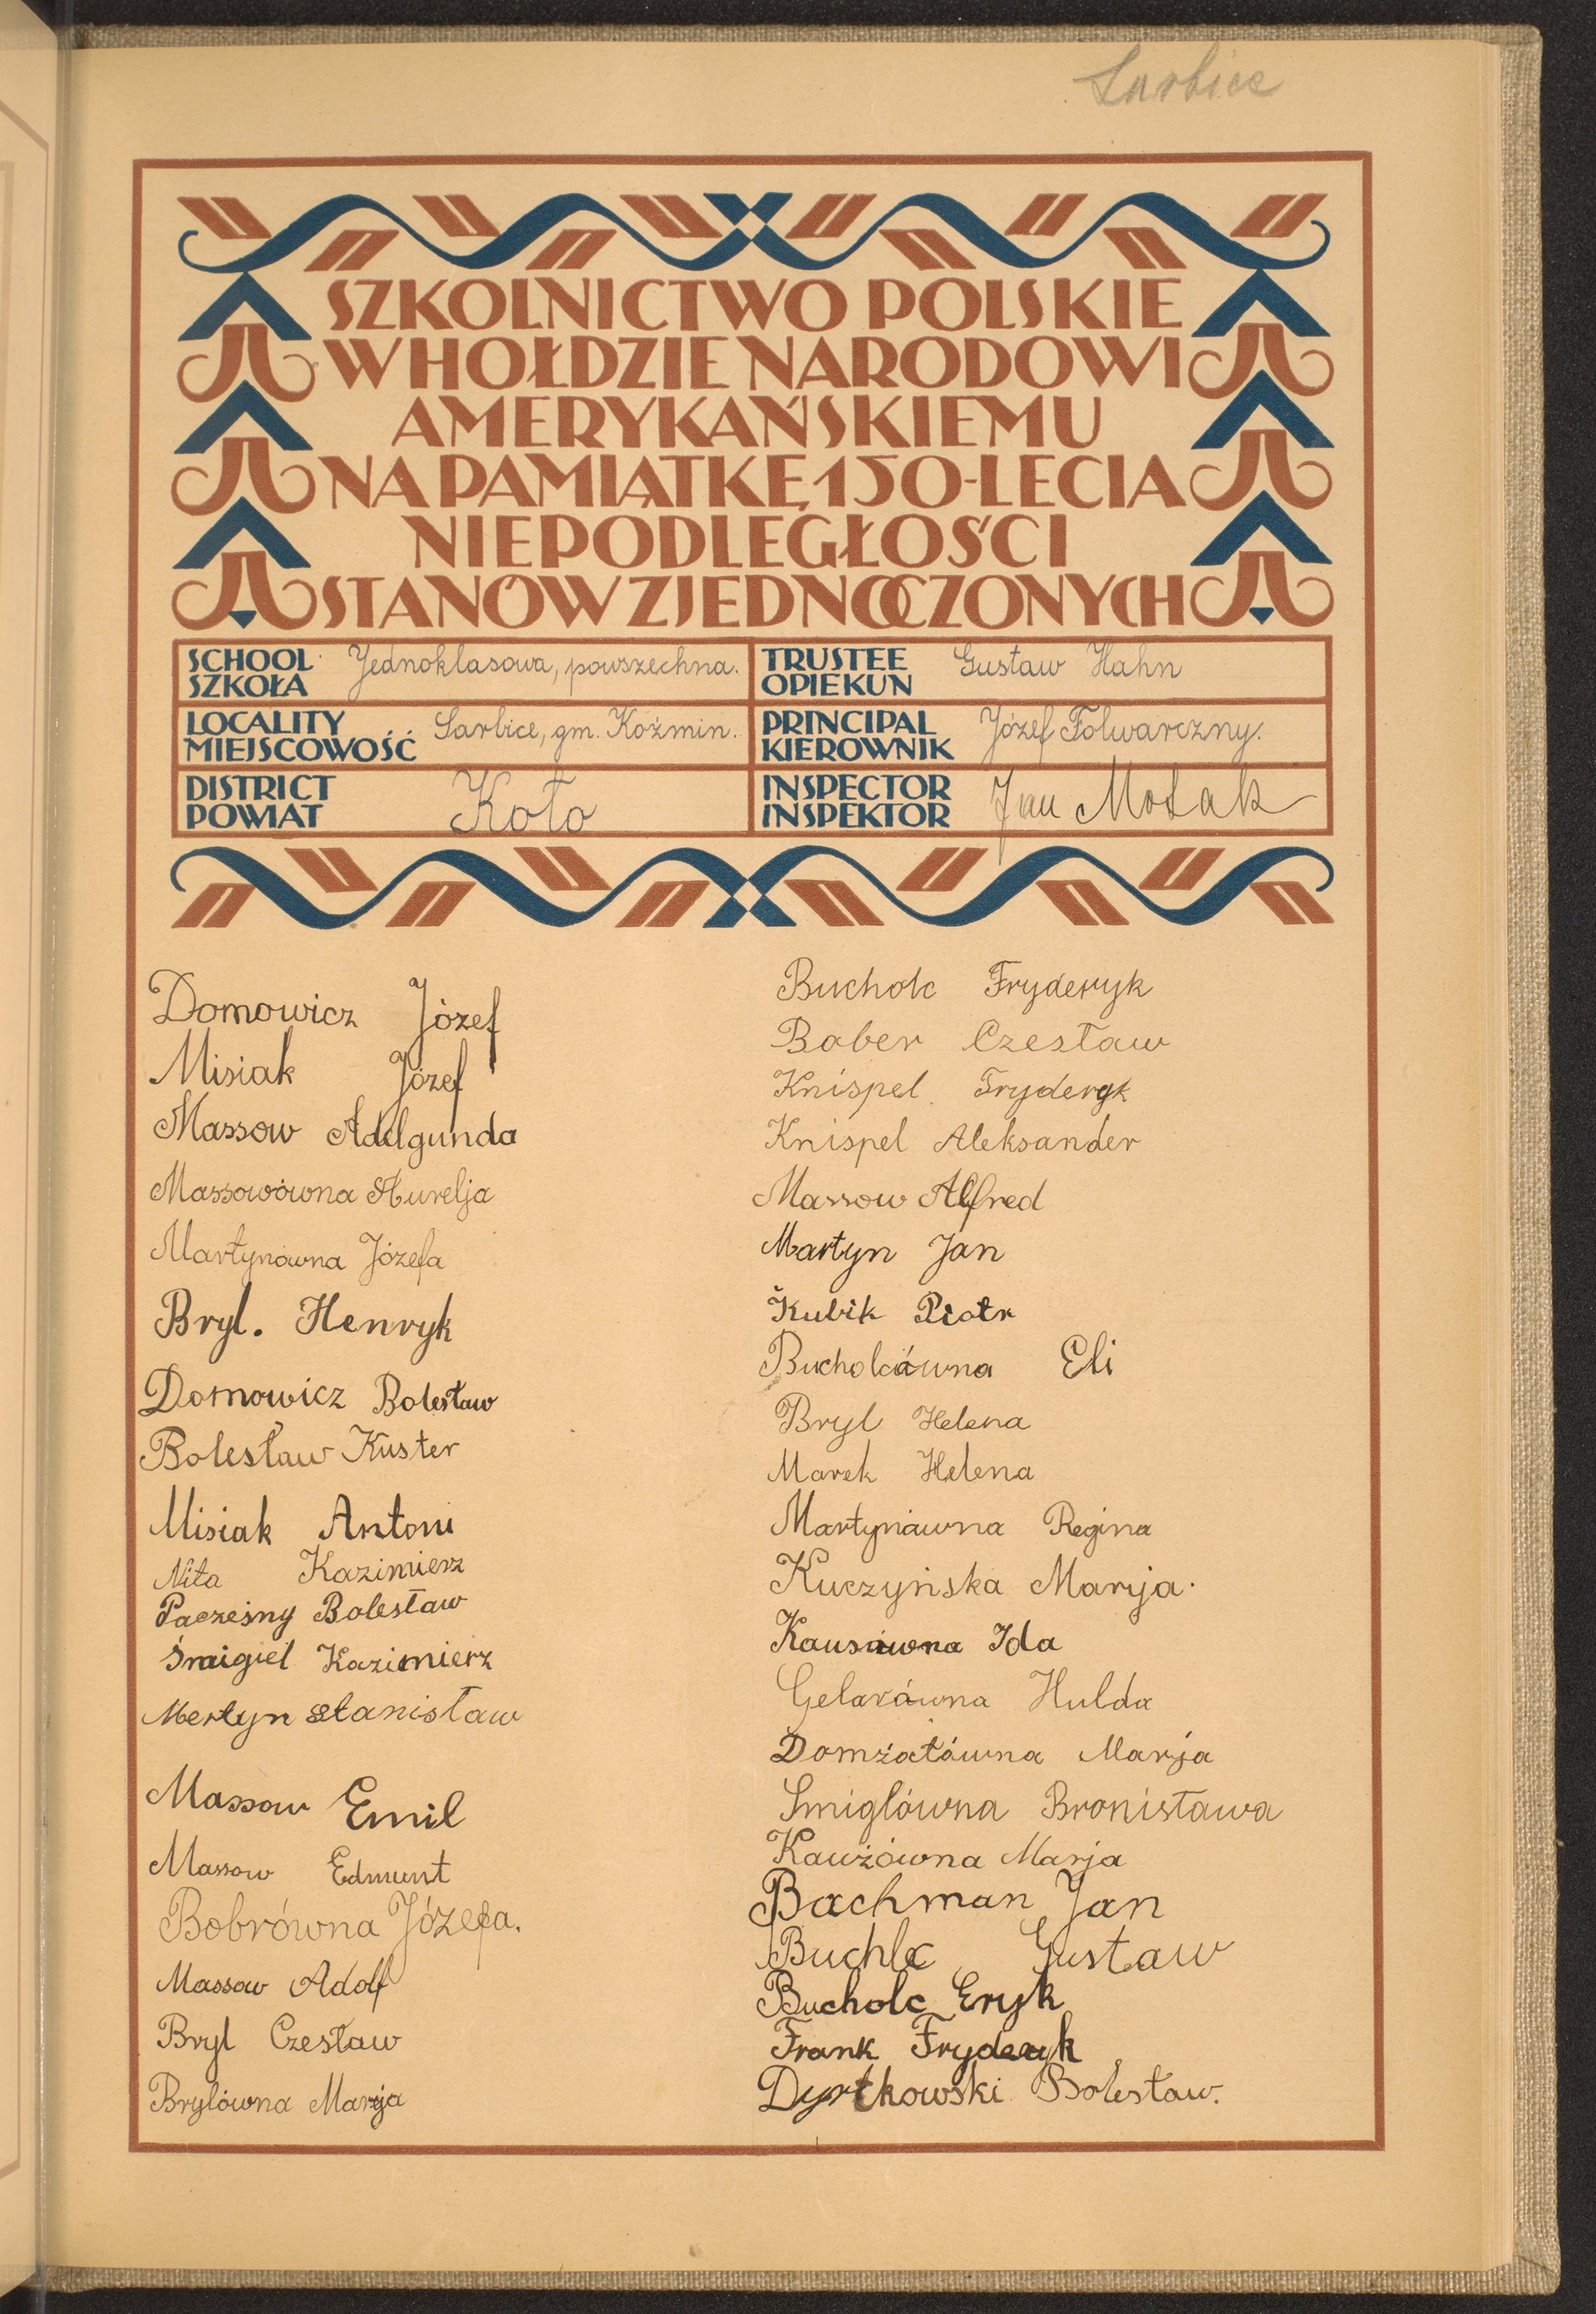 Sarbice
SZKOLNICTWO POLSKIE
W HOŁDZIE NARODOWI
AMERYKAŃSKIEMU
NA PAMIĄTKĘ 150-LECIA
NIEPODLEGŁOŚCI
STANÓW ZJEDNOCZONYCH
SCHOOL SZKOŁA Jednoklasowa, powszechna.
TRUSTEE OPIEKUN Gustaw Hahn
LOCALITY MIEJSCOWOŚĆ Sarbice, gm. Koźmin.
PRINCIPAL KIEROWNIK Józef Folwarczny.
DISTRICT POWIAT Koło
INSPECTOR INSPEKTOR Jan
Domowicz Józef
Misiak Józef
Massow Adelgunda
Massowówna Aurelja
Martynówna Józefa
Bryl. Henryk
Domowicz Bolesław
Bolesław Kuster
Misiak Antoni
Nita Kazimierz
Paczesny Bolesław
Śmigiel Kazimierz
Mertyn Stanisław
Massow Emil
Massow Edmunt
Bobrówna Józefa.
Massow Adolf
Bryl Czesław
Brylówna Marja
Bucholc Fryderyk
Baber Czesław
Knispel Fryderyk
Knispel Aleksander
Massow Alfred
Martyn Jan
Kubik Piotr
Bucholcówna Eli
Bryl Helena
Marek Helena
Martynówna Regina
Kuczyńska Marija.
Kausówna Ida
Gelarówna Hulda
Domżałówna Marja
Smiglówna Bronisława
Kauzówna Marja
Bachman Jan
Buchlc Gustaw
Bucholc Eryk
Frank Fryderyk
Dyrtkowski Bolesław.